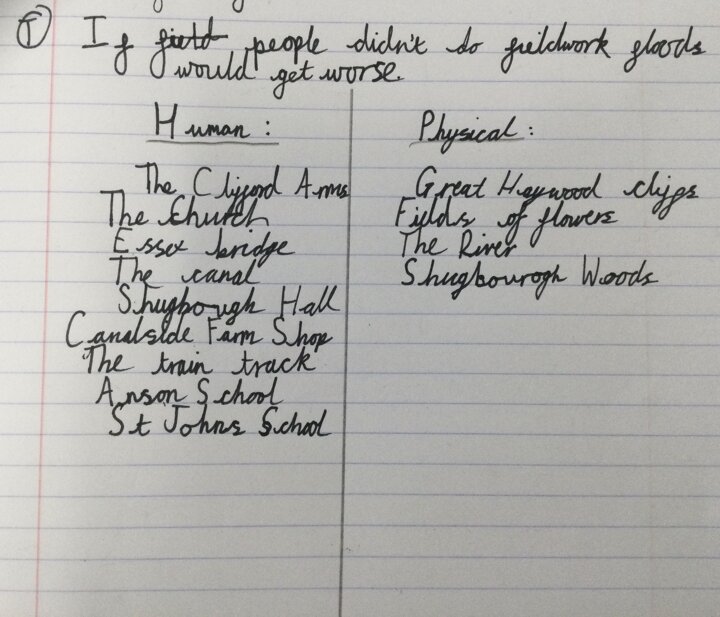 T
If field people didn't do fieldwork floods
would get worse.
Human :
The Clifford Arms
The Church
Essex bridge
The canal
Shugborough Hall
Canalside Farm Shop
The train track
Anson School
St Johns School
Physical :
Great Haywood cliffs
Fields of flowers
The River
Shugbourogh Woods